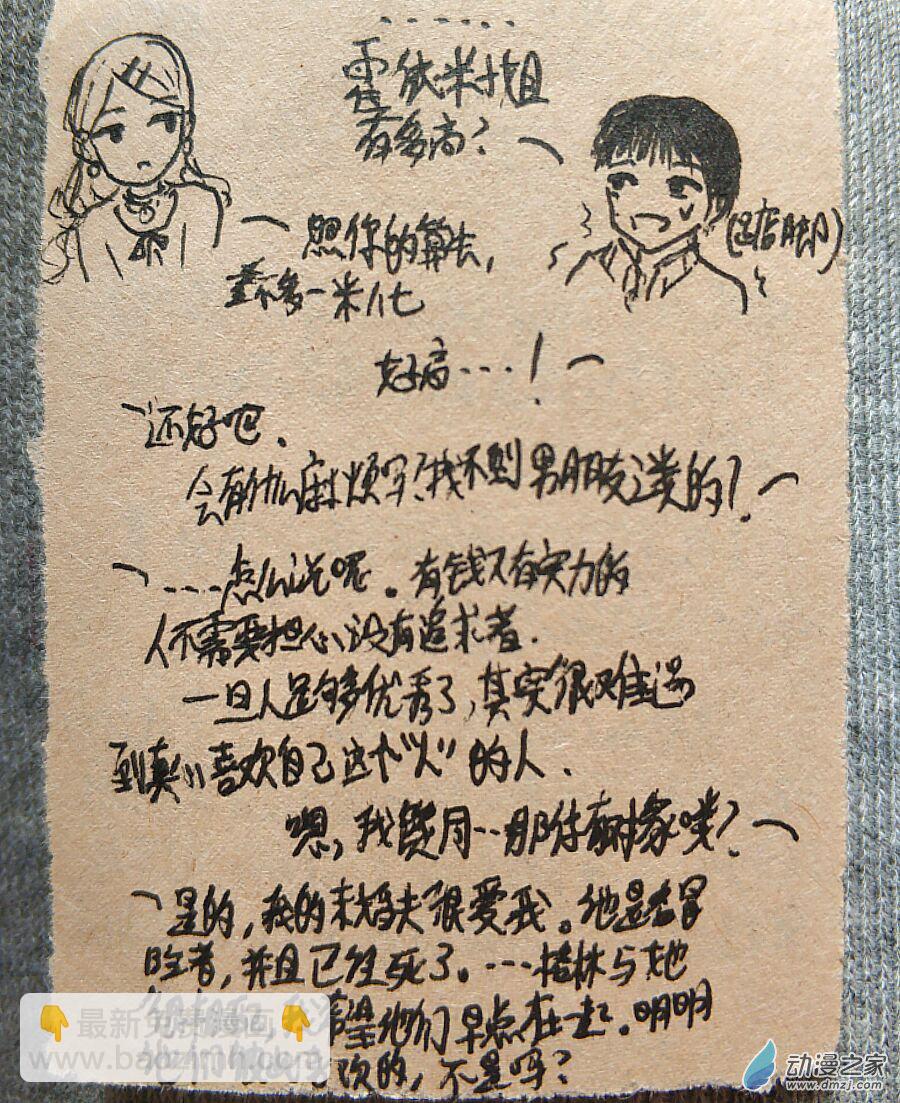 ......
霍依米小姐
有多高?
照你的算法,
差不多一米八七
(店
好高....!
还好吧.
会有什么麻烦吗?找不到男朋友之类的?
....怎么说呢。有钱又有实力的
人不需要担心没有追求者.
一旦人足够多优秀了,其实很难遇
到真心喜欢自己这个"人"的人.
嗯,我赞同..那你有对象喽?
是的,我的未婚夫很爱我。他是名冒
险者,并且已经死了。...格林与她
希望他们早点在一起.明明
欢的,不是吗?
最新免费漫画
www.baozimh.com
动漫之家
www.dmzj.com